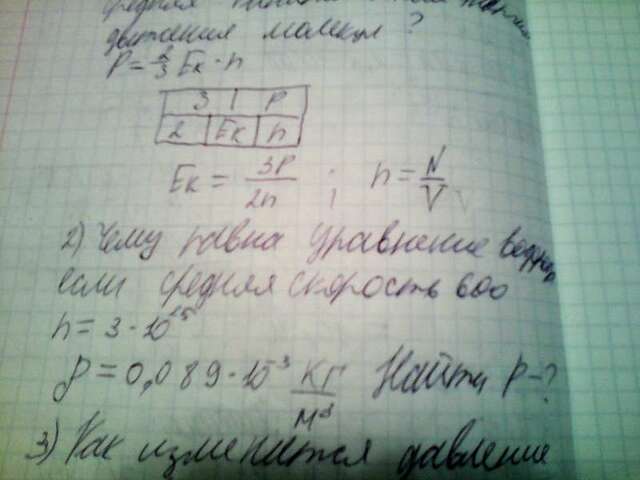 средняя
движения молекул ?
P = 2/3 Ек · n
3 | P
2 Ек n
Ек = 3P/2n ; n = N/V
2) Чему равна уравнение
если средняя скорость 600
n = 3 · 10²⁵
ρ = 0,089 · 10⁻³ кг/м³ Найти P - ?
3) Как изменится давление